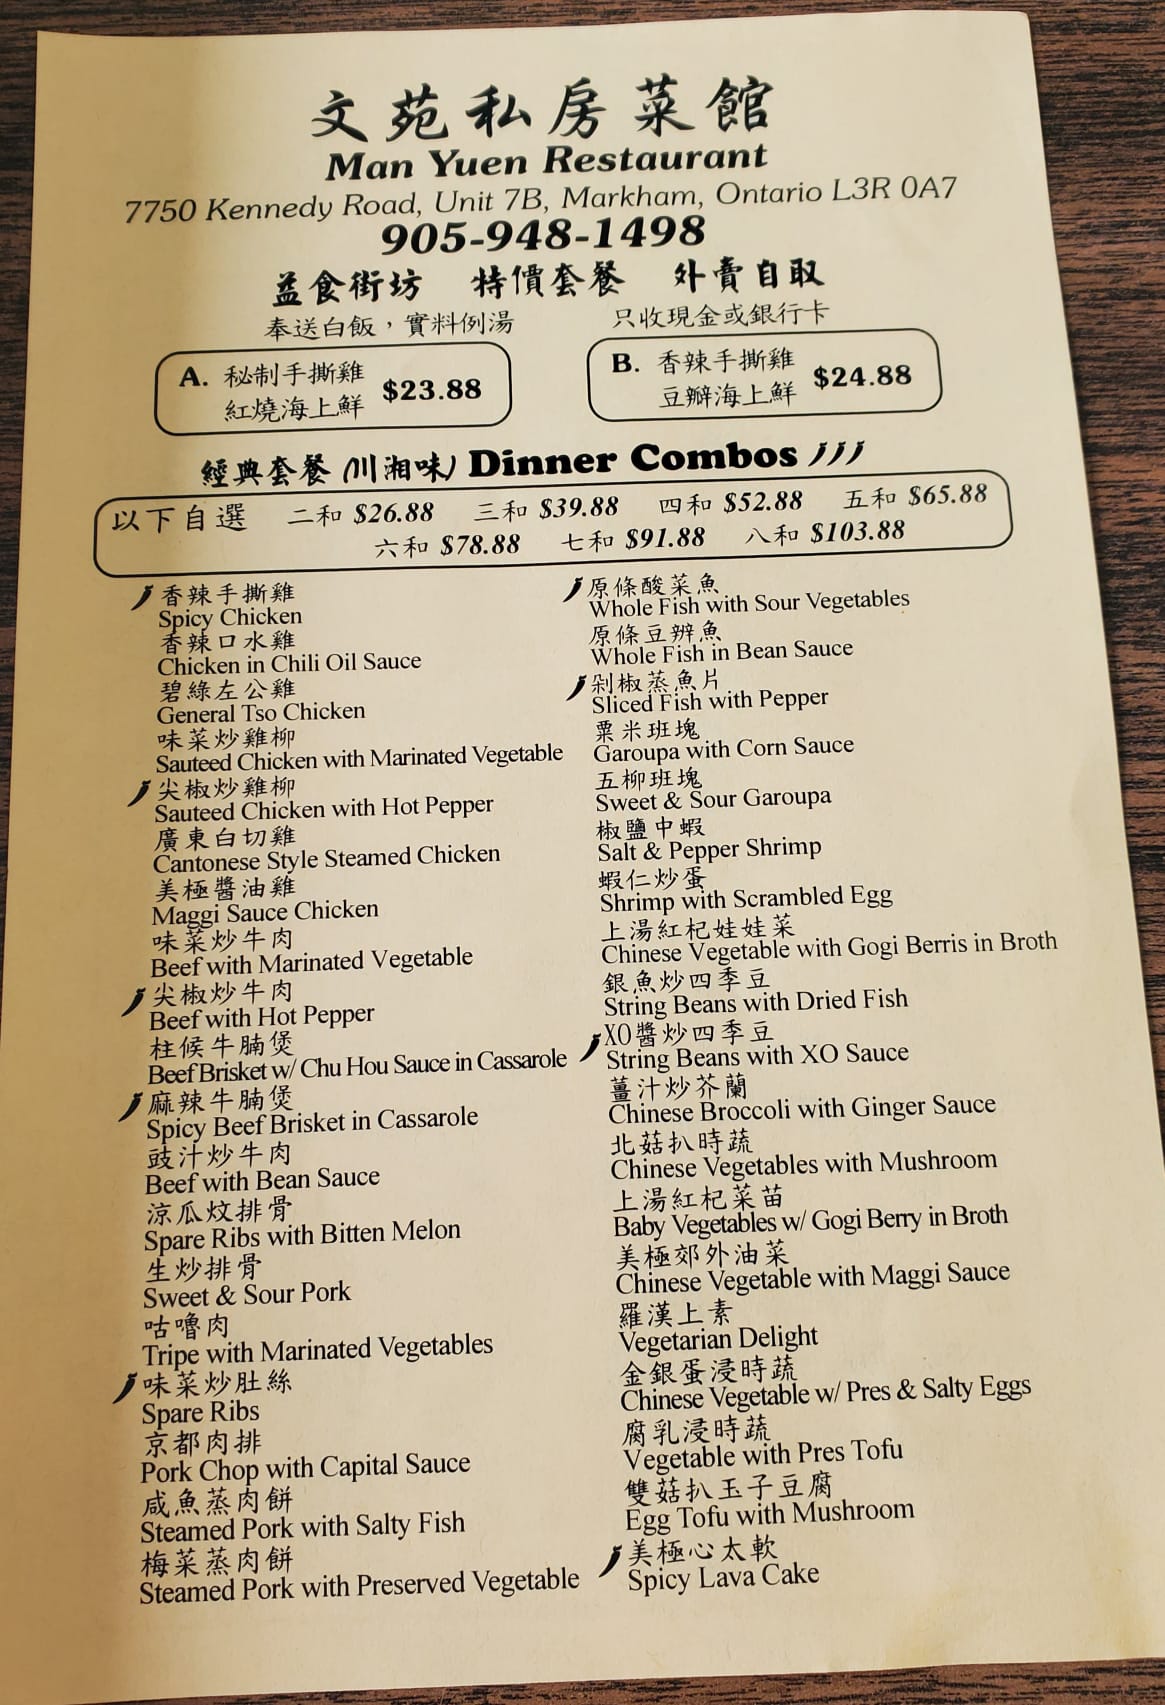 文苑私房菜館
Man Yuen Restaurant
7750 Kennedy Road, Unit 7B, Markham, Ontario L3R 0A7
905-948-1498
益食街坊 特價套餐 外賣自取
奉送白飯，實料例湯 只收現金或銀行卡
A. 秘制手撕雞 $23.88
紅燒海上鮮
B. 香辣手撕雞 $24.88
豆瓣海上鮮
經典套餐 (川湘味) Dinner Combos
以下自選 二和 $26.88 三和 $39.88 四和 $52.88 五和 $65.88
六和 $78.88 七和 $91.88 八和 $103.88
香辣手撕雞
Spicy Chicken
香辣口水雞
Chicken in Chili Oil Sauce
碧綠左公雞
General Tso Chicken
味菜炒雞柳
Sauteed Chicken with Marinated Vegetable
尖椒炒雞柳
Sauteed Chicken with Hot Pepper
廣東白切雞
Cantonese Style Steamed Chicken
美極醬油雞
Maggi Sauce Chicken
味菜炒牛肉
Beef with Marinated Vegetable
尖椒炒牛肉
Beef with Hot Pepper
柱候牛腩煲
Beef Brisket w/ Chu Hou Sauce in Cassarole
麻辣牛腩煲
Spicy Beef Brisket in Cassarole
豉汁炒牛肉
Beef with Bean Sauce
涼瓜炆排骨
Spare Ribs with Bitten Melon
生炒排骨
Sweet & Sour Pork
咕嚕肉
Tripe with Marinated Vegetables
味菜炒肚絲
Spare Ribs
京都肉排
Pork Chop with Capital Sauce
咸魚蒸肉餅
Steamed Pork with Salty Fish
梅菜蒸肉餅
Steamed Pork with Preserved Vegetable
原條酸菜魚
Whole Fish with Sour Vegetables
原條豆辨魚
Whole Fish in Bean Sauce
剁椒蒸魚片
Sliced Fish with Pepper
粟米班塊
Garoupa with Corn Sauce
五柳班塊
Sweet & Sour Garoupa
椒鹽中蝦
Salt & Pepper Shrimp
蝦仁炒蛋
Shrimp with Scrambled Egg
上湯紅杞娃娃菜
Chinese Vegetable with Gogi Berris in Broth
銀魚炒四季豆
String Beans with Dried Fish
XO醬炒四季豆
String Beans with XO Sauce
薑汁炒芥蘭
Chinese Broccoli with Ginger Sauce
北菇扒時蔬
Chinese Vegetables with Mushroom
上湯紅杞菜苗
Baby Vegetables w/ Gogi Berry in Broth
美極郊外油菜
Chinese Vegetable with Maggi Sauce
羅漢上素
Vegetarian Delight
金銀蛋浸時蔬
Chinese Vegetable w/ Pres & Salty Eggs
腐乳浸時蔬
Vegetable with Pres Tofu
雙菇扒玉子豆腐
Egg Tofu with Mushroom
美極心太軟
Spicy Lava Cake